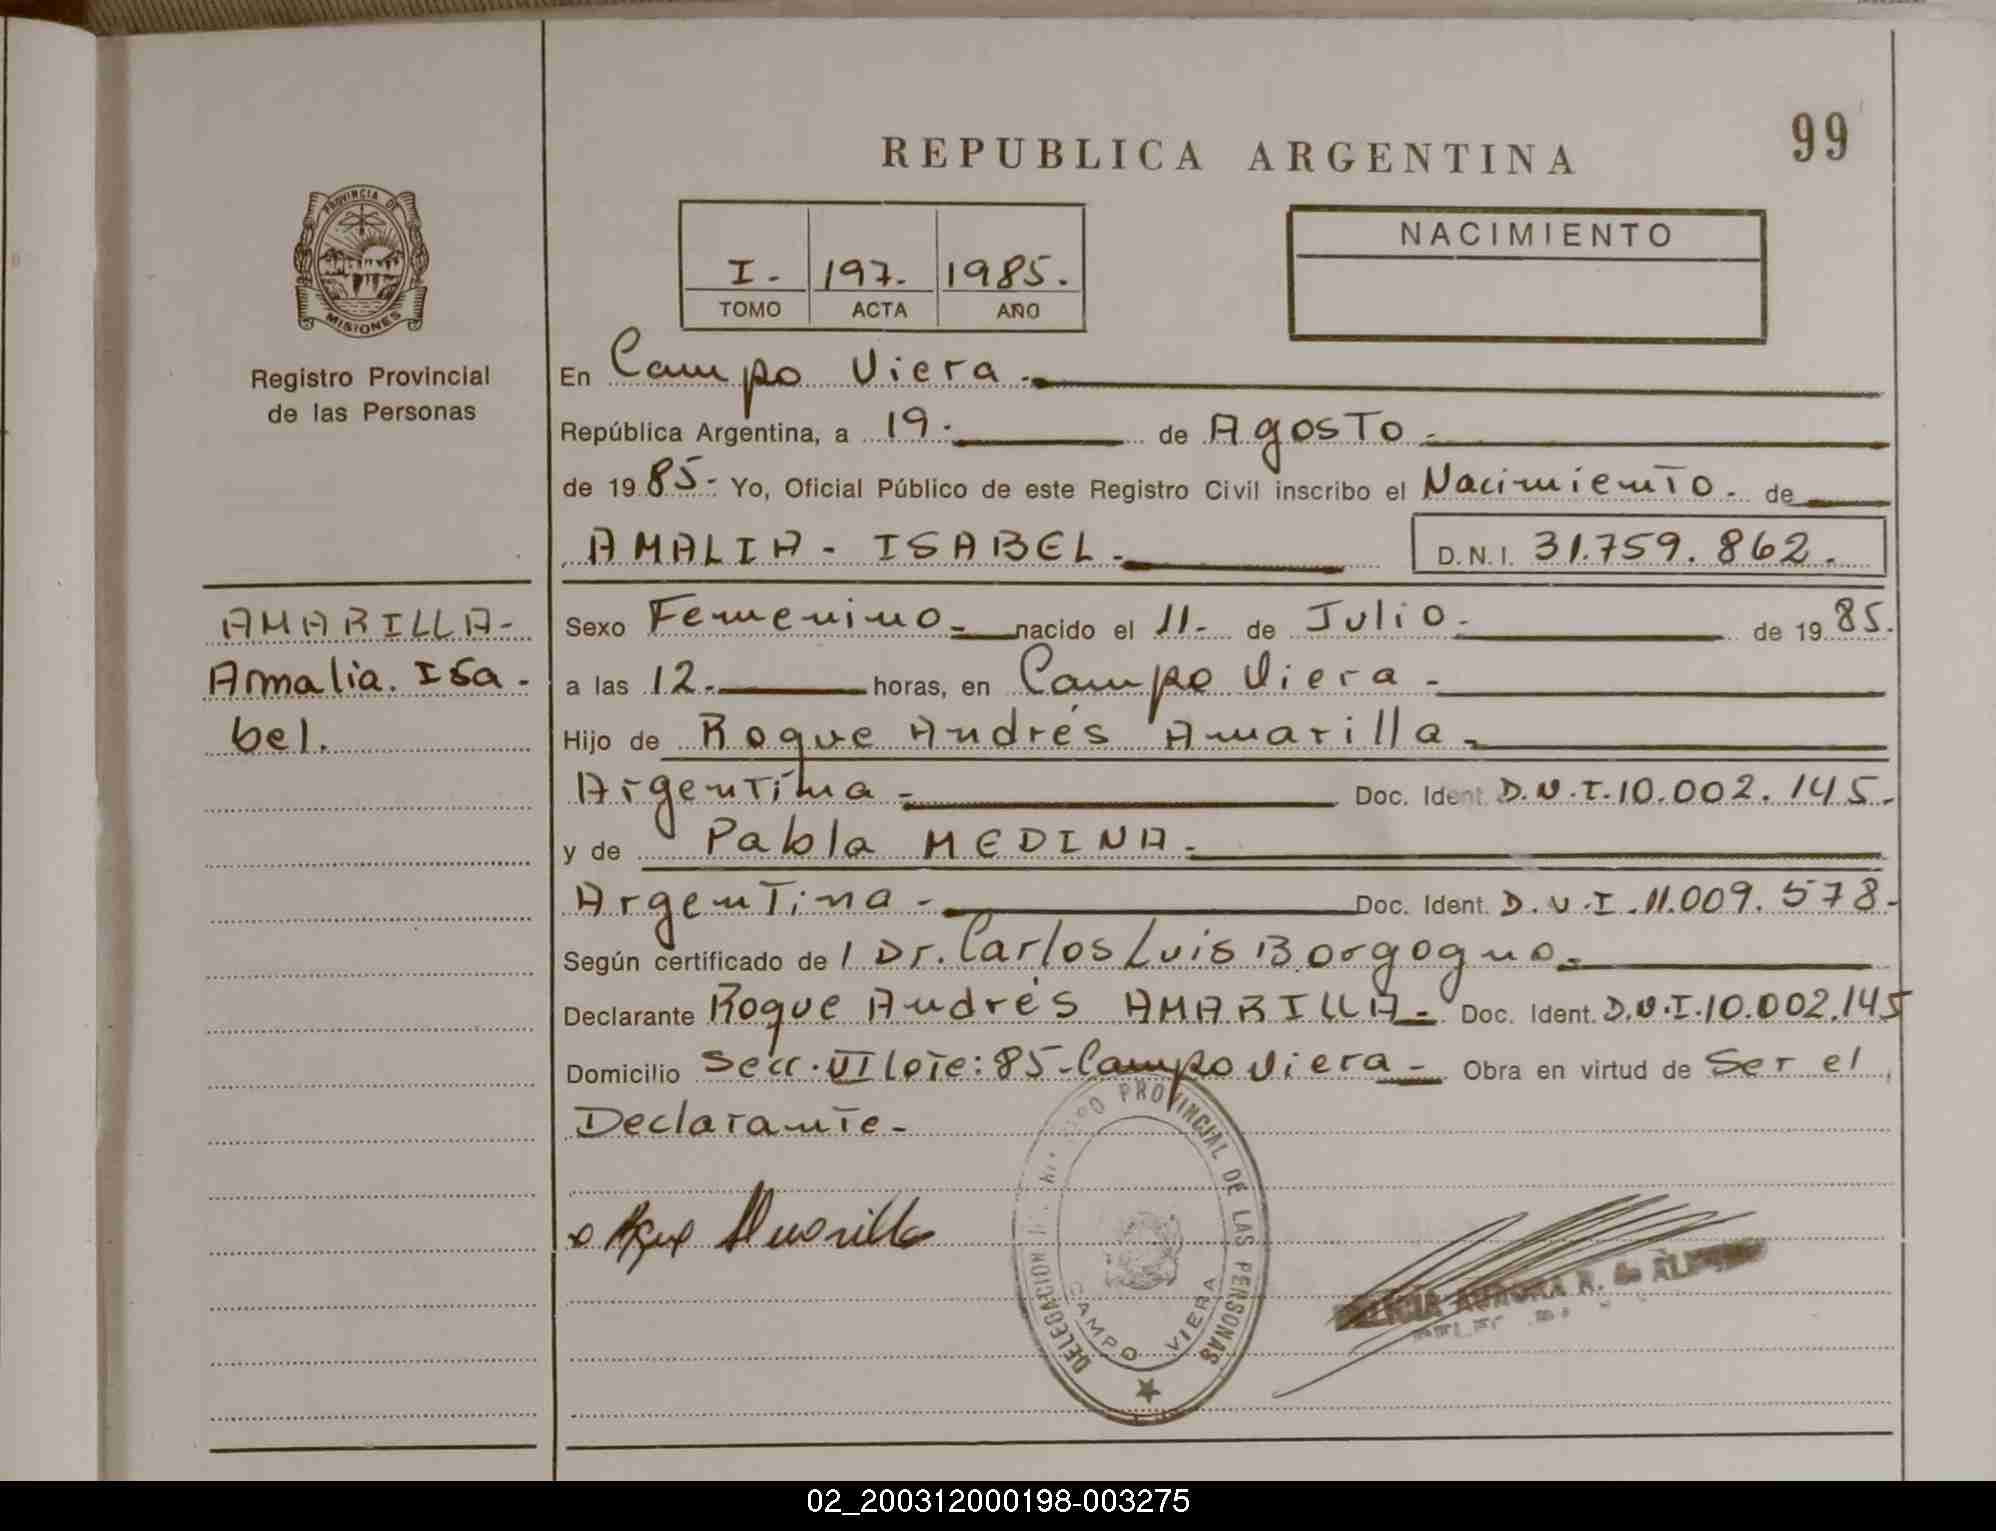 99
REPUBLICA ARGENTINA
PROVINCIA DE
MISIONES
Registro Provincial
de las Personas
I. 197. 1985.
TOMO ACTA AÑO
NACIMIENTO
En Campo Viera.
República Argentina, a 19. de Agosto.
de 1985. Yo, Oficial Público de este Registro Civil inscribo el Nacimiento. de
AMALIA - ISABEL. D.N.I. 31.759.862.
AMARILLA-
Amalia. Isa-
bel.
Sexo Femenino nacido el 11. de Julio. de 1985.
a las 12. horas, en Campo Viera.
Hijo de Roque Andrés Amarilla.
Argentina - Doc. Ident. D.N.I. 10.002.145.
y de Pabla MEDINA.
Argentina - Doc. Ident. D.N.I. 11.009.578.
Según certificado de / Dr. Carlos Luis Borgogno.
Declarante Roque Andrés AMARILLA. Doc. Ident. D.N.I. 10.002.145
Domicilio Secc. VI Lote: 85-Campo Viera - Obra en virtud de Ser el
Declarante-
DELEGACION PROVINCIAL DE LAS PERSONAS
CAMPO VIERA
AURORA R. de
02_200312000198-003275